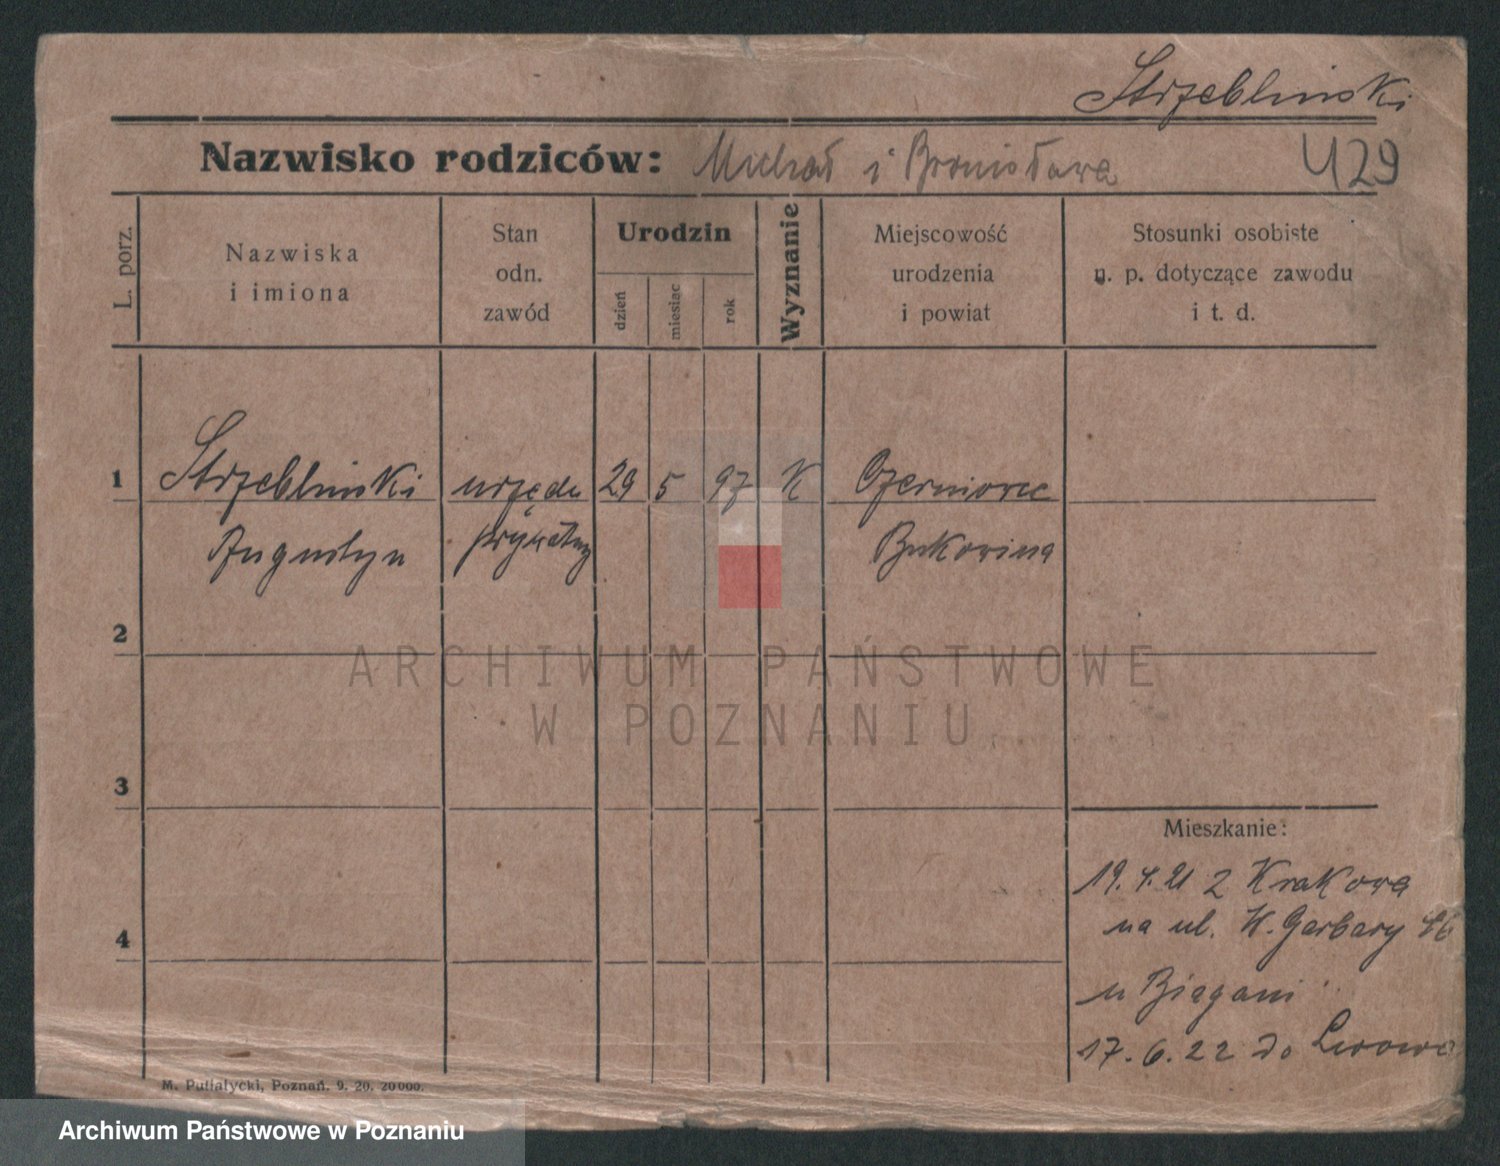 Strzebliński
Nazwisko rodziców: Michał i Bronisława 429
L. porz.
Nazwiska
i imiona
Stan
odn.
zawód
Urodzin
dzień
miesiąc
rok
Wyznanie
Miejscowość
urodzenia
i powiat
Stosunki osobiste
n. p. dotyczące zawodu
i t. d.
1 Strzebliński urzędn 29 5 97 K Czerniowce
Augustyn prywatny Bukowina
2
3
4
Mieszkanie:
19.4.21 z Krakowa
na ul. W. Garbary
u
17.6.22 do Lwowa
M. Putiatycki, Poznań. 9. 20. 20000.
ARCHIWUM PAŃSTWOWE
W POZNANIU
Archiwum Państwowe w Poznaniu